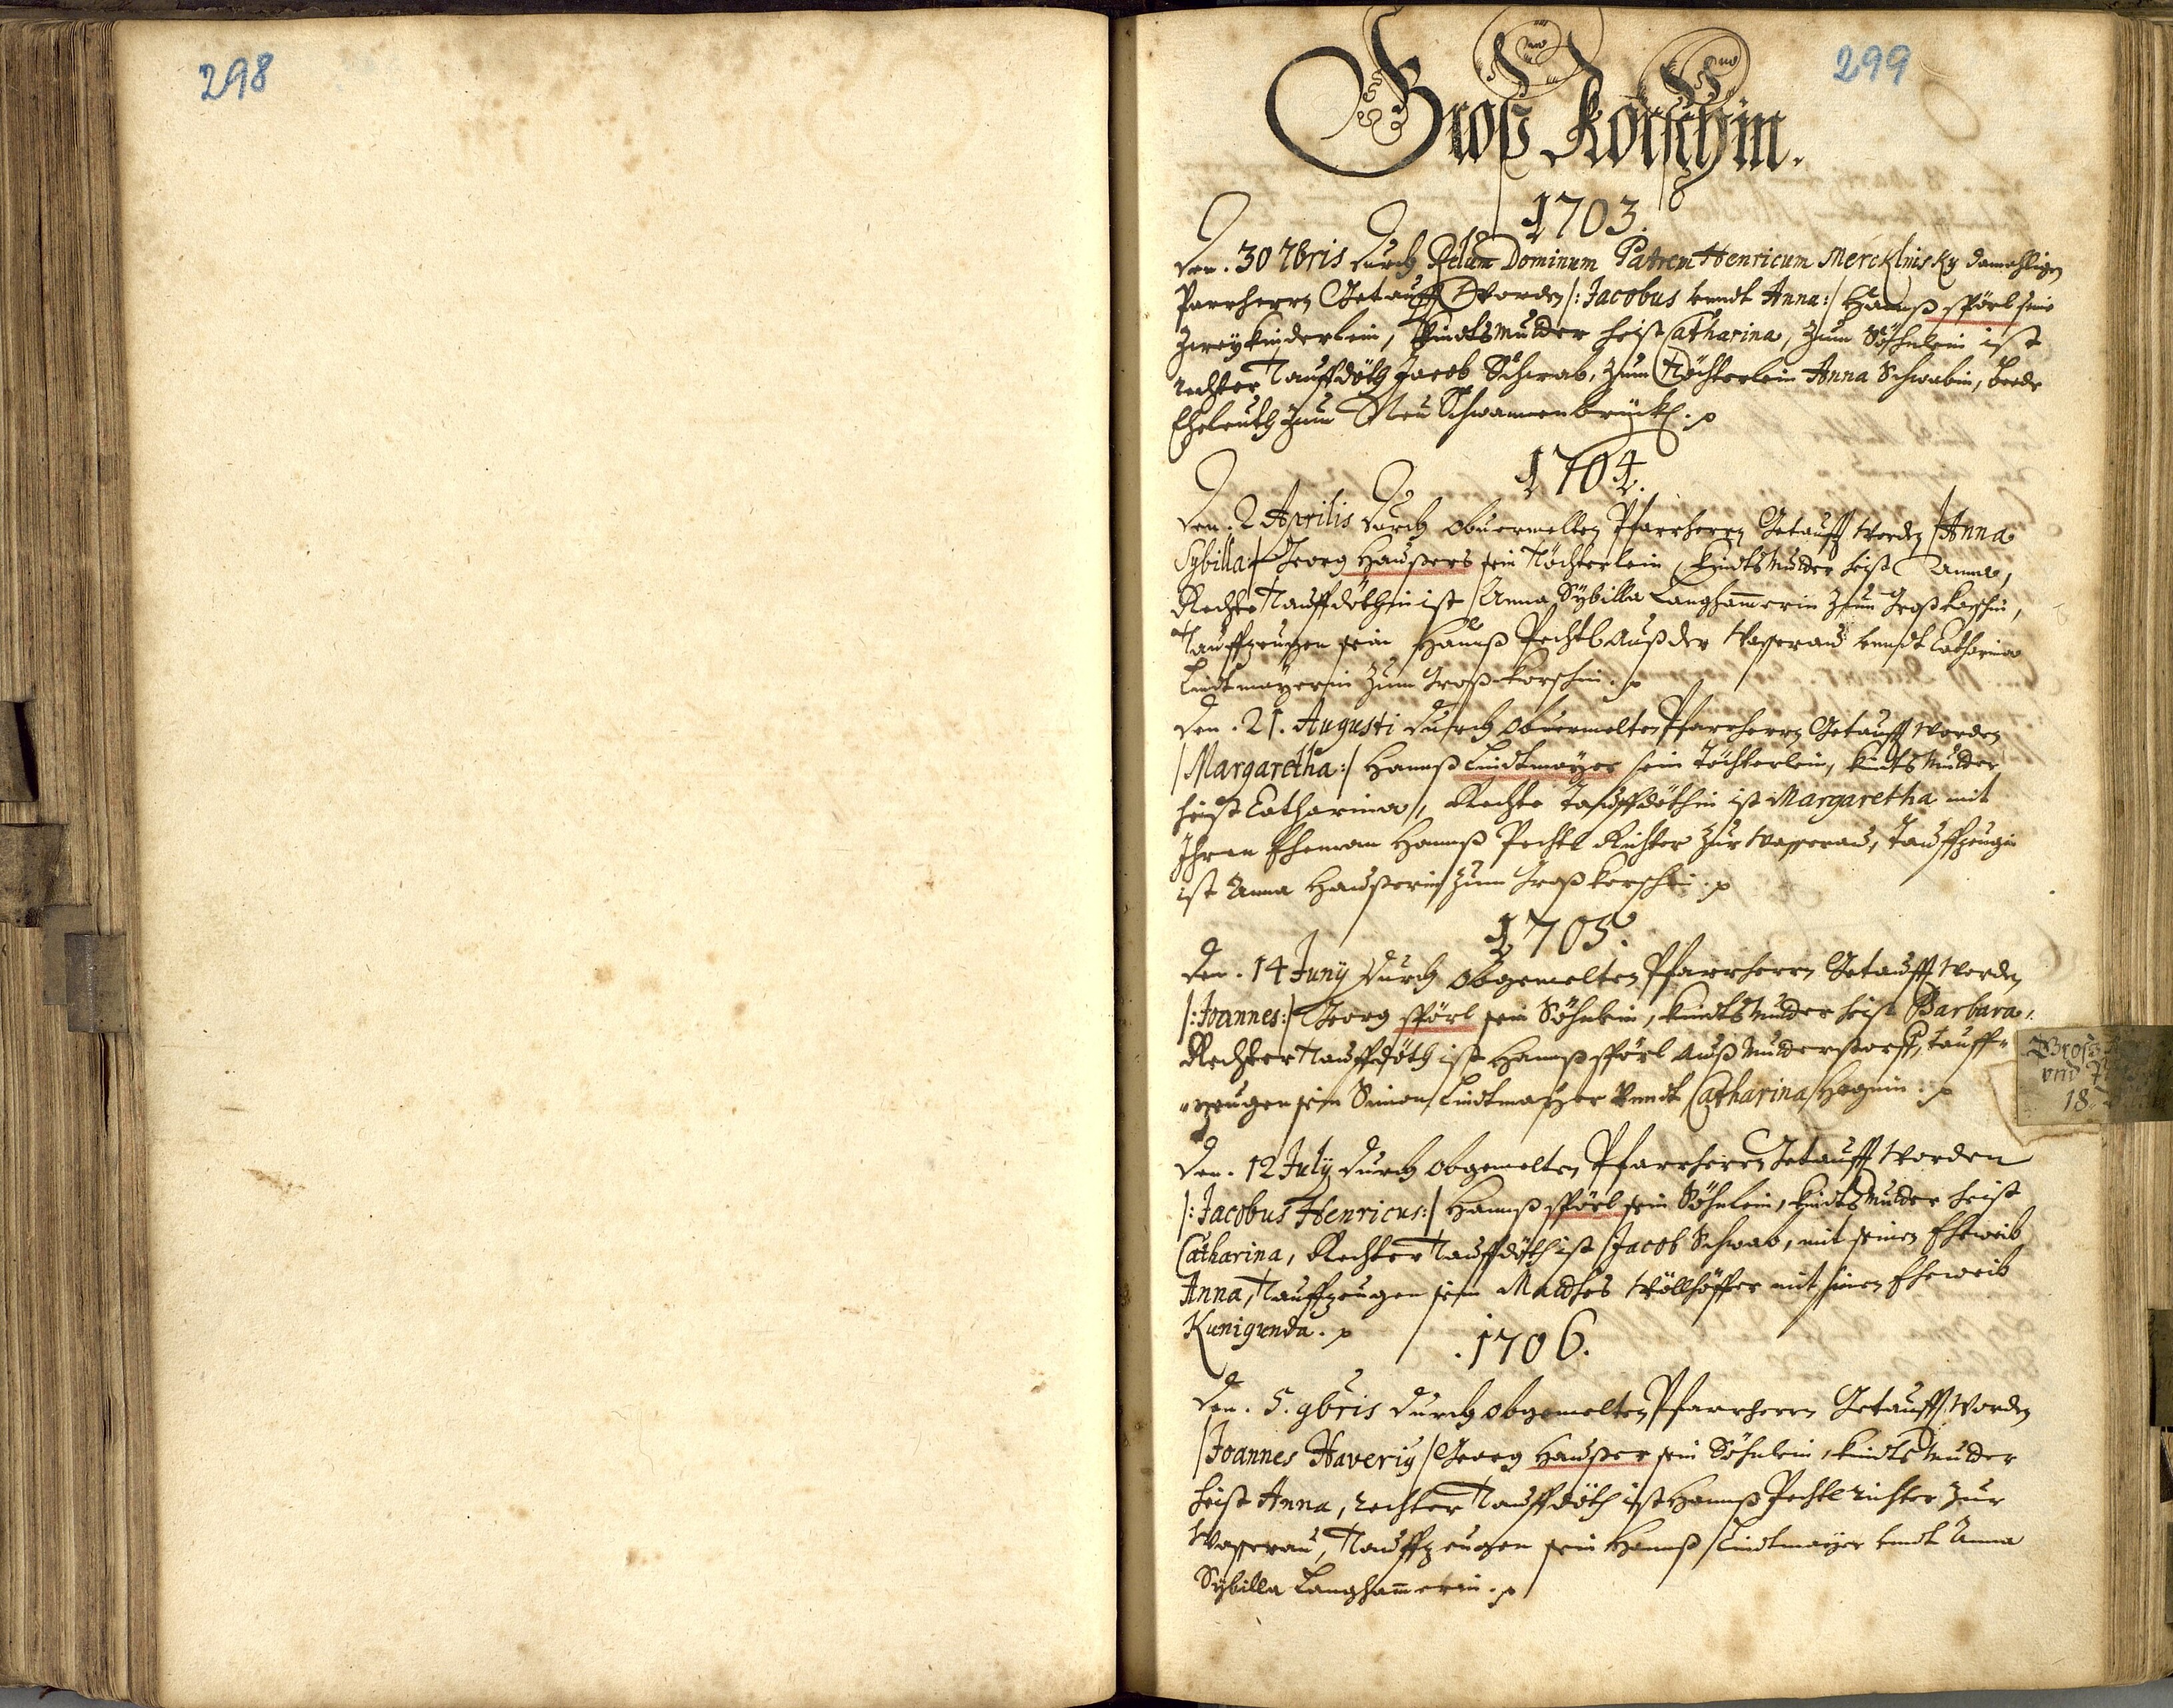 298
299
Groß Korschin.
1703.
Den. 30 7bris durch Rdum Dominum Patrem Henricum Mercklinsky damahligen
Parrherrn Getaufft worden /: Jacobus vnndt Anna :/ Hannß Spörl seine
Zwey kinderlein, Kindtsmutder heist Catharina, zum Söhnlein ist
rechter Tauffdöth Jacob Schwab, zum Töchterlein Anna Schwabin, beede
Eheleuth zum Neu Schwannenbrückl.
1704.
Den. 2 Aprilis durch obuermelten Pfarrherrn Getaufft worden / Anna
Sybilla :/ Georg Haußers sein Töchterlein, Kindtsmutder heist Anna,
Rechte Tauffdöthin ist Anna Sybilla Langhammerin zum Großkorschin,
Tauffzeugen sein Hannß Pechtl auß der Wasserau vnndt Catharina
Lindtmayerin zum Großkorschin.
Den. 21. Augusti durch obuermelten Pfarrherrn Getaufft worden
/ Margaretha :/ Hannß Lindtmayer sein Töchterlein, kindtsmutder
heist Catharina, Rechte Tauffdöthin ist Margaretha mit
Ihren Eheman Hannß Pechtl Richter zur Wasserau, Tauffzeugin
ist Anna Haußerin zum Großkorschin.
1705.
Den. 14 Juny durch obgemelten Pfarrherrn Getaufft worden
/: Joannes :/ Georg Spörl sein Söhnlein, kindtsmutder heist Barbara,
Rechter Tauffdöth ist Hannß Spörl auß Mutderstorff, tauff=
=zeugen sein Simon Lindtmayer vnndt Catharina
Den. 12 July durch obgemelten Pfarrherrn Getaufft worden
/: Jacobus Henricus :/ Hannß Spörl sein Söhnlein, kindtsmutder heist
Catharina, Rechter Tauffdöth ist Jacob Schwab, mit seinen Eheweib
Anna, Tauffzeugen sein Mathes Wöllhöffer mit seinen Eheweib
Kunigunda.
.1706.
Den. 5. 9bris durch obgemelten Pfarrherrn Getaufft worden
/ Joannes / Georg Haußer sein Söhnlein, kindtsmutder
heist Anna, rechter Tauffdöth ist Hannß Pechtl richter zur
Wasserau, Tauffzeugen sein Hannß Lindtmayer vnndt Anna
Sybilla Langhammerin.
Gros
vnd
18